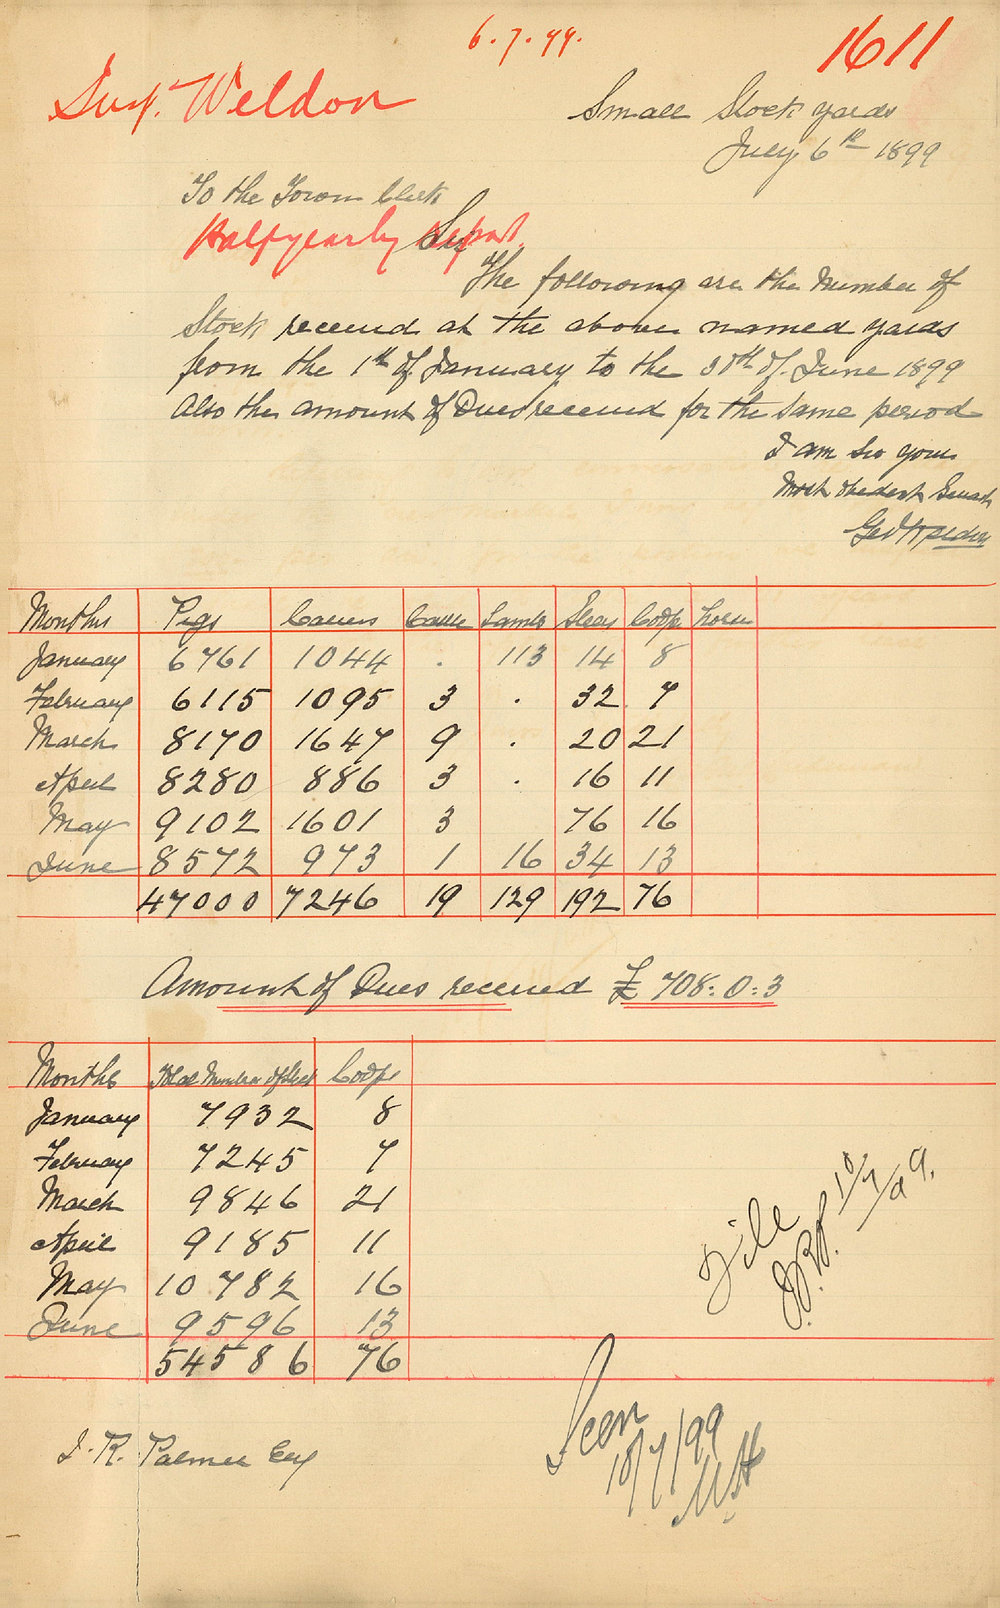 6.7.99.
1611
Supt. Weldon
Small Stock yards
July 6th 1899
To the Town Clerk
Half yearly Report.
Sir
The following are the Number of
Stock received at the above named yards
from the 1st of January to the 30th of June 1899
Also the amount of Dues received for the same period
I am Sir yours
Most obedient Servant
Geo Weldon
Months Pigs Calves Cattle Lambs Sheep Coops horses
January 6761 1044 . 113 14 8
February 6115 1095 3 . 32 7
March 8170 1647 9 . 20 21
April 8280 886 3 . 16 11
May 9102 1601 3 76 16
June 8572 973 1 16 34 13
47000 7246 19 129 192 76
Amount of Dues received £ 708:0:3
Months Total Number of Stock Coops
January 7932 8
February 7245 7
March 9846 21
April 9185 11
May 10782 16
June 9596 13
54586 76
File
10/7/99.
Seen
10/7/99
J. R. Palmer Esq